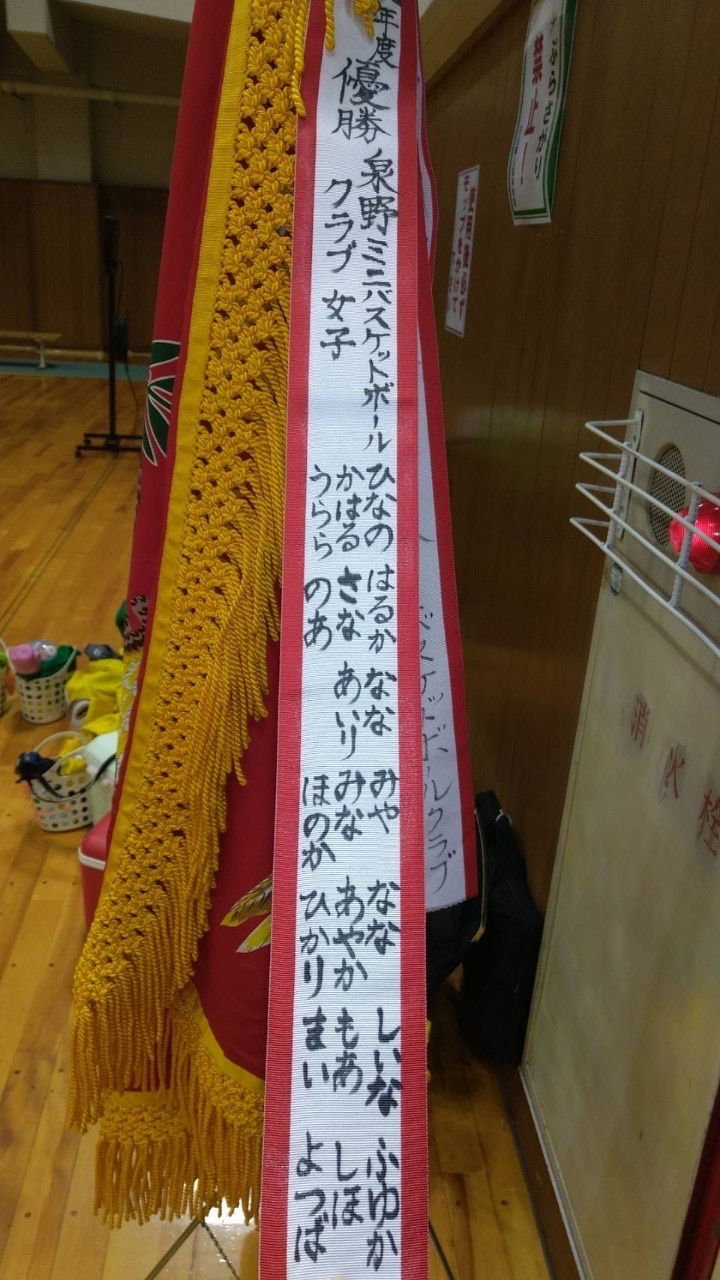 年度
優勝
泉野ミニバスケットボール
クラブ 女子
ひなの はるか なな みや なな しいな ふゆか
かはる さな あいり みな あやか もあ しほ
うらら のあ ほのか ひかり まい よつば
バスケットボールクラブ
ぶらさがり
禁止!
使用後必ず
モップをかけて
消火栓